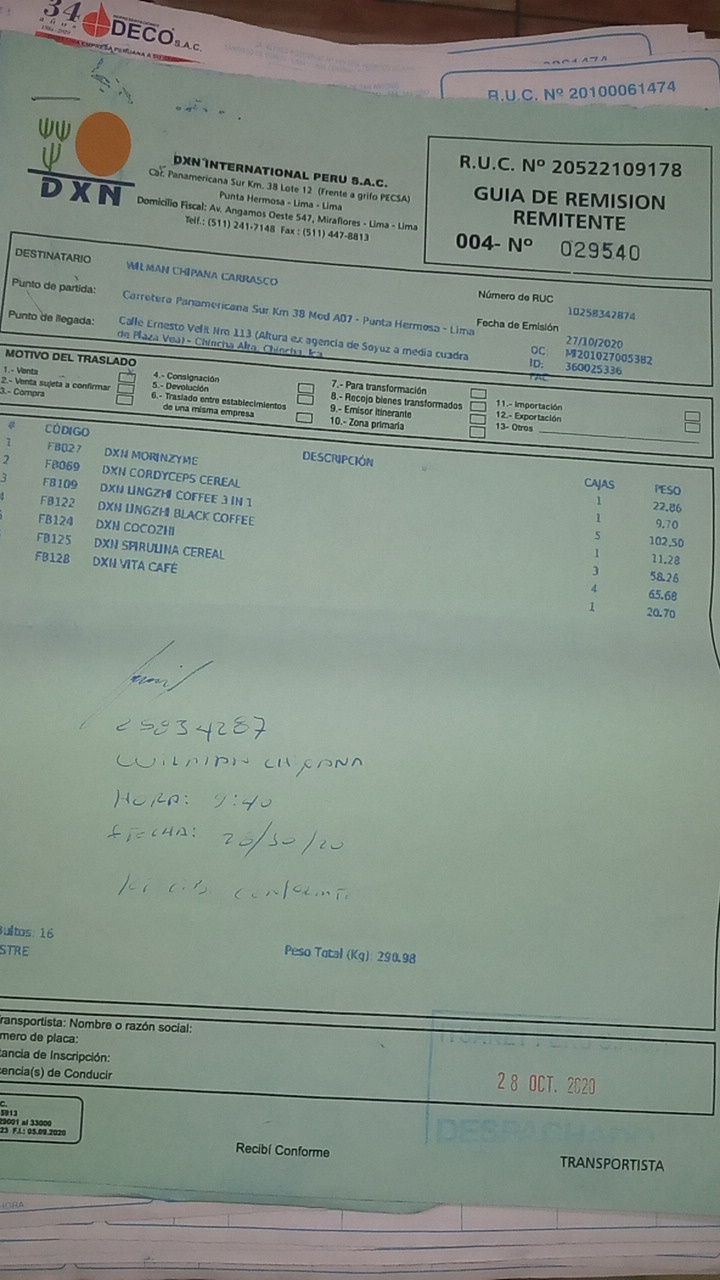 34
años
DECO S.A.C.
R.U.C. Nº 20100061474
DXN
DXN INTERNATIONAL PERU S.A.C.
Car. Panamericana Sur Km. 38 Lote 12 (Frente a grifo PECSA)
Punta Hermosa - Lima - Lima
Domicilio Fiscal: Av. Angamos Oeste 547, Miraflores - Lima - Lima
Telf.: (511) 241-7148 Fax : (511) 447-8813
R.U.C. Nº 20522109178
GUIA DE REMISION
REMITENTE
004- Nº 029540
DESTINATARIO WILMAN CHIPANA CARRASCO
Número de RUC 10258342874
Punto de partida: Carretera Panamericana Sur Km 38 Mod A07 - Punta Hermosa - Lima
Fecha de Emisión 27/10/2020
Punto de llegada: Calle Ernesto Velit Nro 113 (Altura ex agencia de Soyuz a media cuadra
de Plaza Vea) - Chincha Alta, Chincha, Ica
OC: MI201027005382
ID: 360025336
FAC
MOTIVO DEL TRASLADO
1.- Venta X
2.- Venta sujeta a confirmar
3.- Compra
4.- Consignación
5.- Devolución
6.- Traslado entre establecimientos
de una misma empresa
7.- Para transformación
8.- Recojo bienes transformados
9.- Emisor Itinerante
10.- Zona primaria
11.- Importación
12.- Exportación
13- Otros
# CÓDIGO DESCRIPCIÓN CAJAS PESO
1 FB027 DXN MORINZYME 1 22.86
2 FB069 DXN CORDYCEPS CEREAL 1 9.70
3 FB109 DXN LINGZHI COFFEE 3 IN 1 5 102.50
FB122 DXN LINGZHI BLACK COFFEE 1 11.28
FB124 DXN COCOZHI 3 58.26
FB125 DXN SPIRULINA CEREAL 4 65.68
FB128 DXN VITA CAFÉ 1 20.70
25834287
WILMAN CHIPANA
HORA: 9:40
FECHA:
conforme
Bultos: 16
STRE
Peso Total (Kg): 290.98
ransportista: Nombre o razón social:
mero de placa:
tancia de Inscripción:
cencia(s) de Conducir
28 OCT. 2020
DESPACHADO
C.
5913
29001 al 33000
23 F.I.: 05.09.2020
Recibí Conforme
TRANSPORTISTA